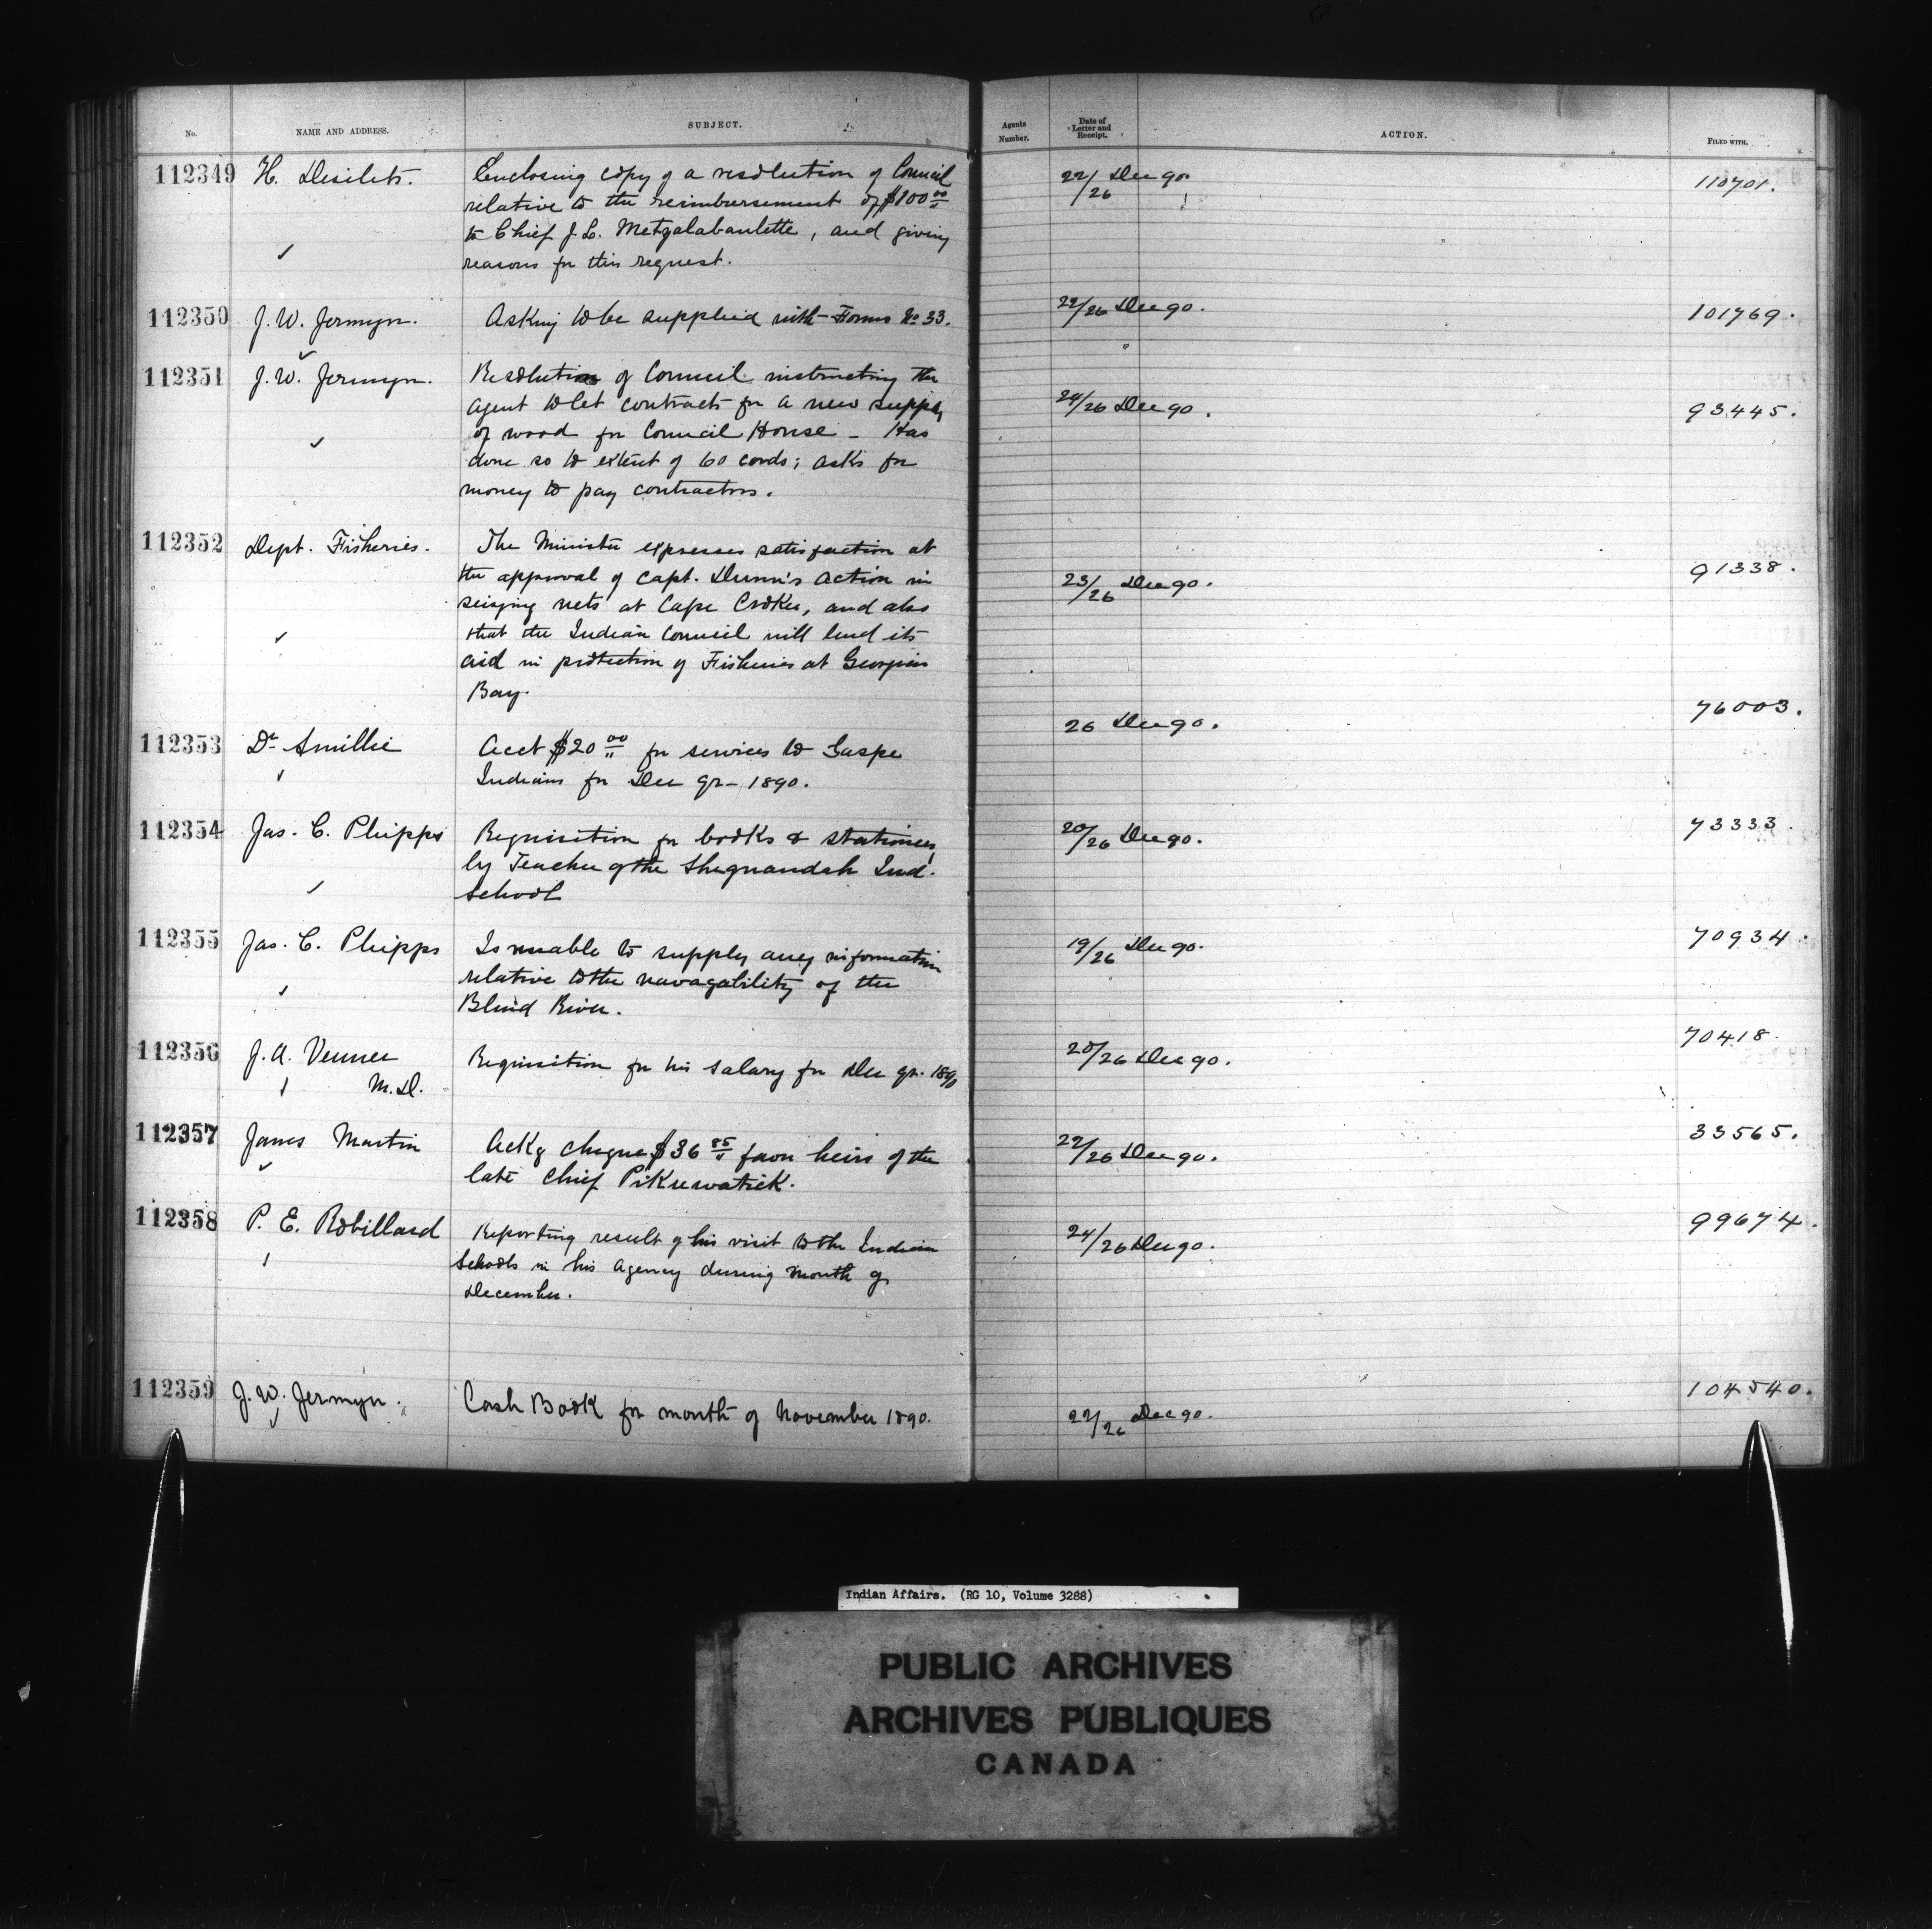 No. NAME AND ADDRESS. SUBJECT. Agents Number. Date of Letter and Receipt. ACTION. FILED WITH.
112349 H. Desilets. Enclosing copy of a resolution of Council 22/26 Dec 90. 110701.
relative to the reimbursement of $100 00
to Chief J. L. Metzalabanlette, and giving
reasons for this request.
112350 J. W. Jermyn. Asking to be supplied with Forms No 33. 22/26 Dec 90. 101769.
112351 J. W. Jermyn. Resolution of Council instructing the
agent to let contracts for a new supply 24/26 Dec 90. 93445.
of wood for Council House - Has
done so to extent of 60 cords; asks for
money to pay contractors.
112352 Dept. Fisheries. The Minister expresses satisfaction at
the approval of Capt. Dunn's action in 23/26 Dec 90. 91338.
seizing nets at Cape Croker, and also
that the Indian Council will lend its
aid in protection of Fisheries at Georgian
Bay.
112353 Dr Smillie Acct $20 00 for services to Gaspe 26 Dec 90. 76003.
Indians for Dec qr - 1890.
112354 Jas. C. Phipps Requisition for books & stationery 20/26 Dec 90. 73333
by Teacher of the Sheguandah Ind.
School
112355 Jas. C. Phipps Is unable to supply any information 19/26 Dec 90. 70934.
relative to the navagability of the
Blind River.
112356 J. A. Venner Requisition for his salary for Dec qr. 1890 20/26 Dec 90. 70418.
M.D.
112357 James Martin Ackg cheque $36 85 favor heirs of the 22/26 Dec 90. 33565.
late Chief Pikuwatick.
112358 P. E. Robillard Reporting result of his visit to the Indian 24/26 Dec 90. 99674.
Schools in his Agency during month of
December.
112359 J. W. Jermyn. Cash Book for month of November 1890. 22/26 Dec 90. 104540.
Indian Affairs. (RG 10, Volume 3288)
PUBLIC ARCHIVES
ARCHIVES PUBLIQUES
CANADA